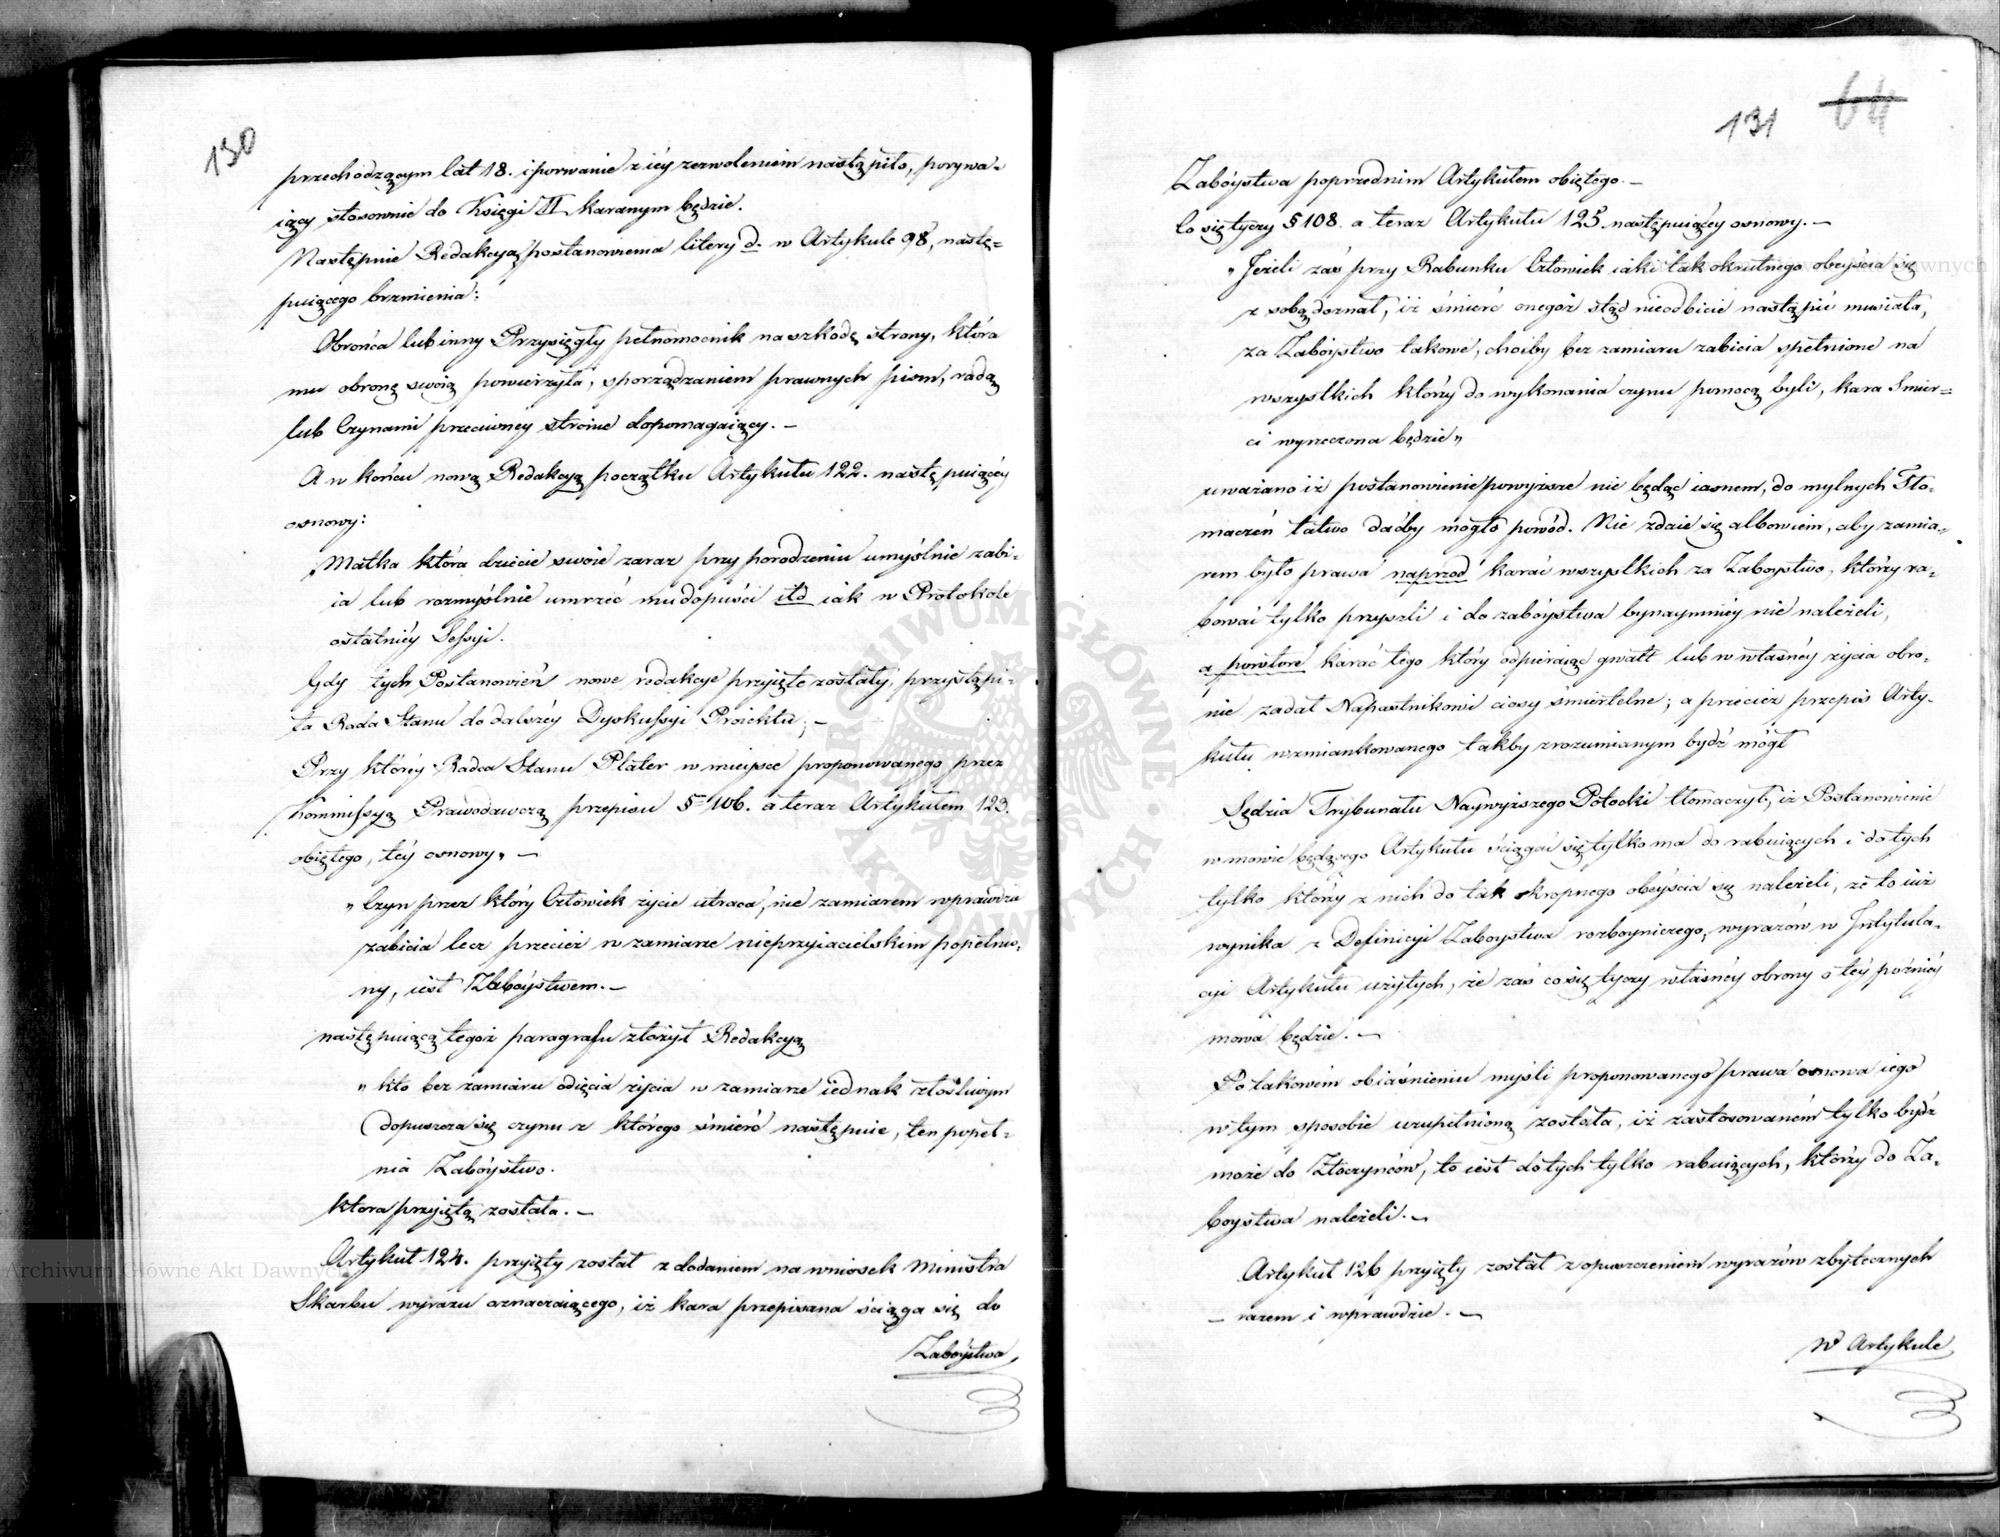 130
przechodzącym lat 18. i porwanie z iéy zezwoleniem nastąpiło, porywa-
iący stosownie do Księgi II karanym będzie.
Następnie Redakcyą postanowienia litery d. w Artykule 98, nastę=
puiącego brzmienia:
Obrońca lub inny Przysięgły pełnomocnik na szkodę strony, która
mu obronę swoią powierzyła, sporządzaniem prawnych pism, radą
lub Czynami przeciwney stronie dopomagaiący. —
A w końcu nową Redakcyą początku Artykułu 122. nastę puiącéy
osnowy:
„Matka która dziecie swoie zaraz przy porodzeniu umyślnie zabi-
ia lub rozmyślnie umrzeć mu dopuści itd iak w Protokole
ostatniéy Sessyi.
Gdy tych Postanowień nowe redakcye przyięte zostały, przystąpi-
ła Rada Stanu do dalszéy Dyskussyi Proiektu; —
Przy któréy Radca Stanu Plater w mieysce proponowanego przez
Kommissyą Prawodawczą przepisu § 106. a teraz Artykułem 123.
obiętego, téy osnowy, —
„Czyn przez który Człowiek życie utraca, nie zamiarem wprawdzie
zabicia lecz przecież w zamiarze nieprzyiacielskim popełnio-
ny, iest Zabóystwem. —
następuiącą tegoż paragrafu złożył Redakcyą
„kto bez zamiaru odięcia życia w zamiarze iednak złośliwym
dopuszcza się czynu z którego śmierć następuie, ten popeł-
nia Zabóystwo.
która przyiętą została. —
Artykuł 124. przyięty został z dodaniem na wniosek Ministra
Skarbu wyrazu oznaczaiącego, iż kara przepisana ściąga się do
Zabóystwa
131
64
Zabóystwa poprzednim Artykułem obiętego. —
Co się tyczy § 108. a teraz Artykułu 125 następuiącéy osnowy. —
„Jeżeli zaś przy Rabunku Człowiek iaki tak okrutnego obeyścia się
z sobą doznał, iż śmierć onegoż stąd nieodbicie nastąpić musiała,
za Zabóystwo takowe, choćby bez zamiaru zabicia spełnione na
wszystkich którzy do wykonania czynu pomocą byli, kara Smier=
ci wyrzeczona będzie„
uważano iż postanowienie powyższe nie będąc iasnem, do mylnych Tło-
maczeń łatwo daćby mogło powód. Nie zdaie się albowiem, aby zamia-
rem było prawa naprzod karać wszystkich za Zaboystwo, którzy ra-
bować tylko przyszli i do zabóystwa bynaymniéy nie należeli,
a powtore karać tego który odpieraiąc gwałt lub w własnéy życia obro-
nie zadał Napastnikowi ciosy śmiertelne; a przecież przepis Arty-
kułu wzmiankowanego takby zrozumianym bydź mógł
Sędzia Trybunału Naywyższego Potocki tłomaczył, iż Postanowienie
w mowie będącego Artykułu ściągać się tylko ma do rabuiących i do tych
tylko którzy z nich do tak okropnego obeyścia się należeli, że to iuż
wynika z Definicyi Zaboystwa rozboyniczego, wyrazów w Intytula-
cyi Artykułu użytych, że zaś co się tyczy własnéy obrony o téy późniéy
mowa będzie. —
Po takowém obiaśnieniu myśli proponowanego prawa osnowa iego
w tym sposobie uzupełnioną została, iż zastosowaném tylko bydź
może do Złoczyńców, to iest do tych tylko rabuiących, którzy do Za-
boystwa należeli. —
Artykuł 126 przyięty został z opuszczeniem wyrazów zbytecznych
— razem i wprawdzie. —
W Artykule
Archiwum Główne Akt Dawnych
Archiwum Główne Akt Dawnych
ARCHIWUM GŁÓWNE · AKT DAWNYCH